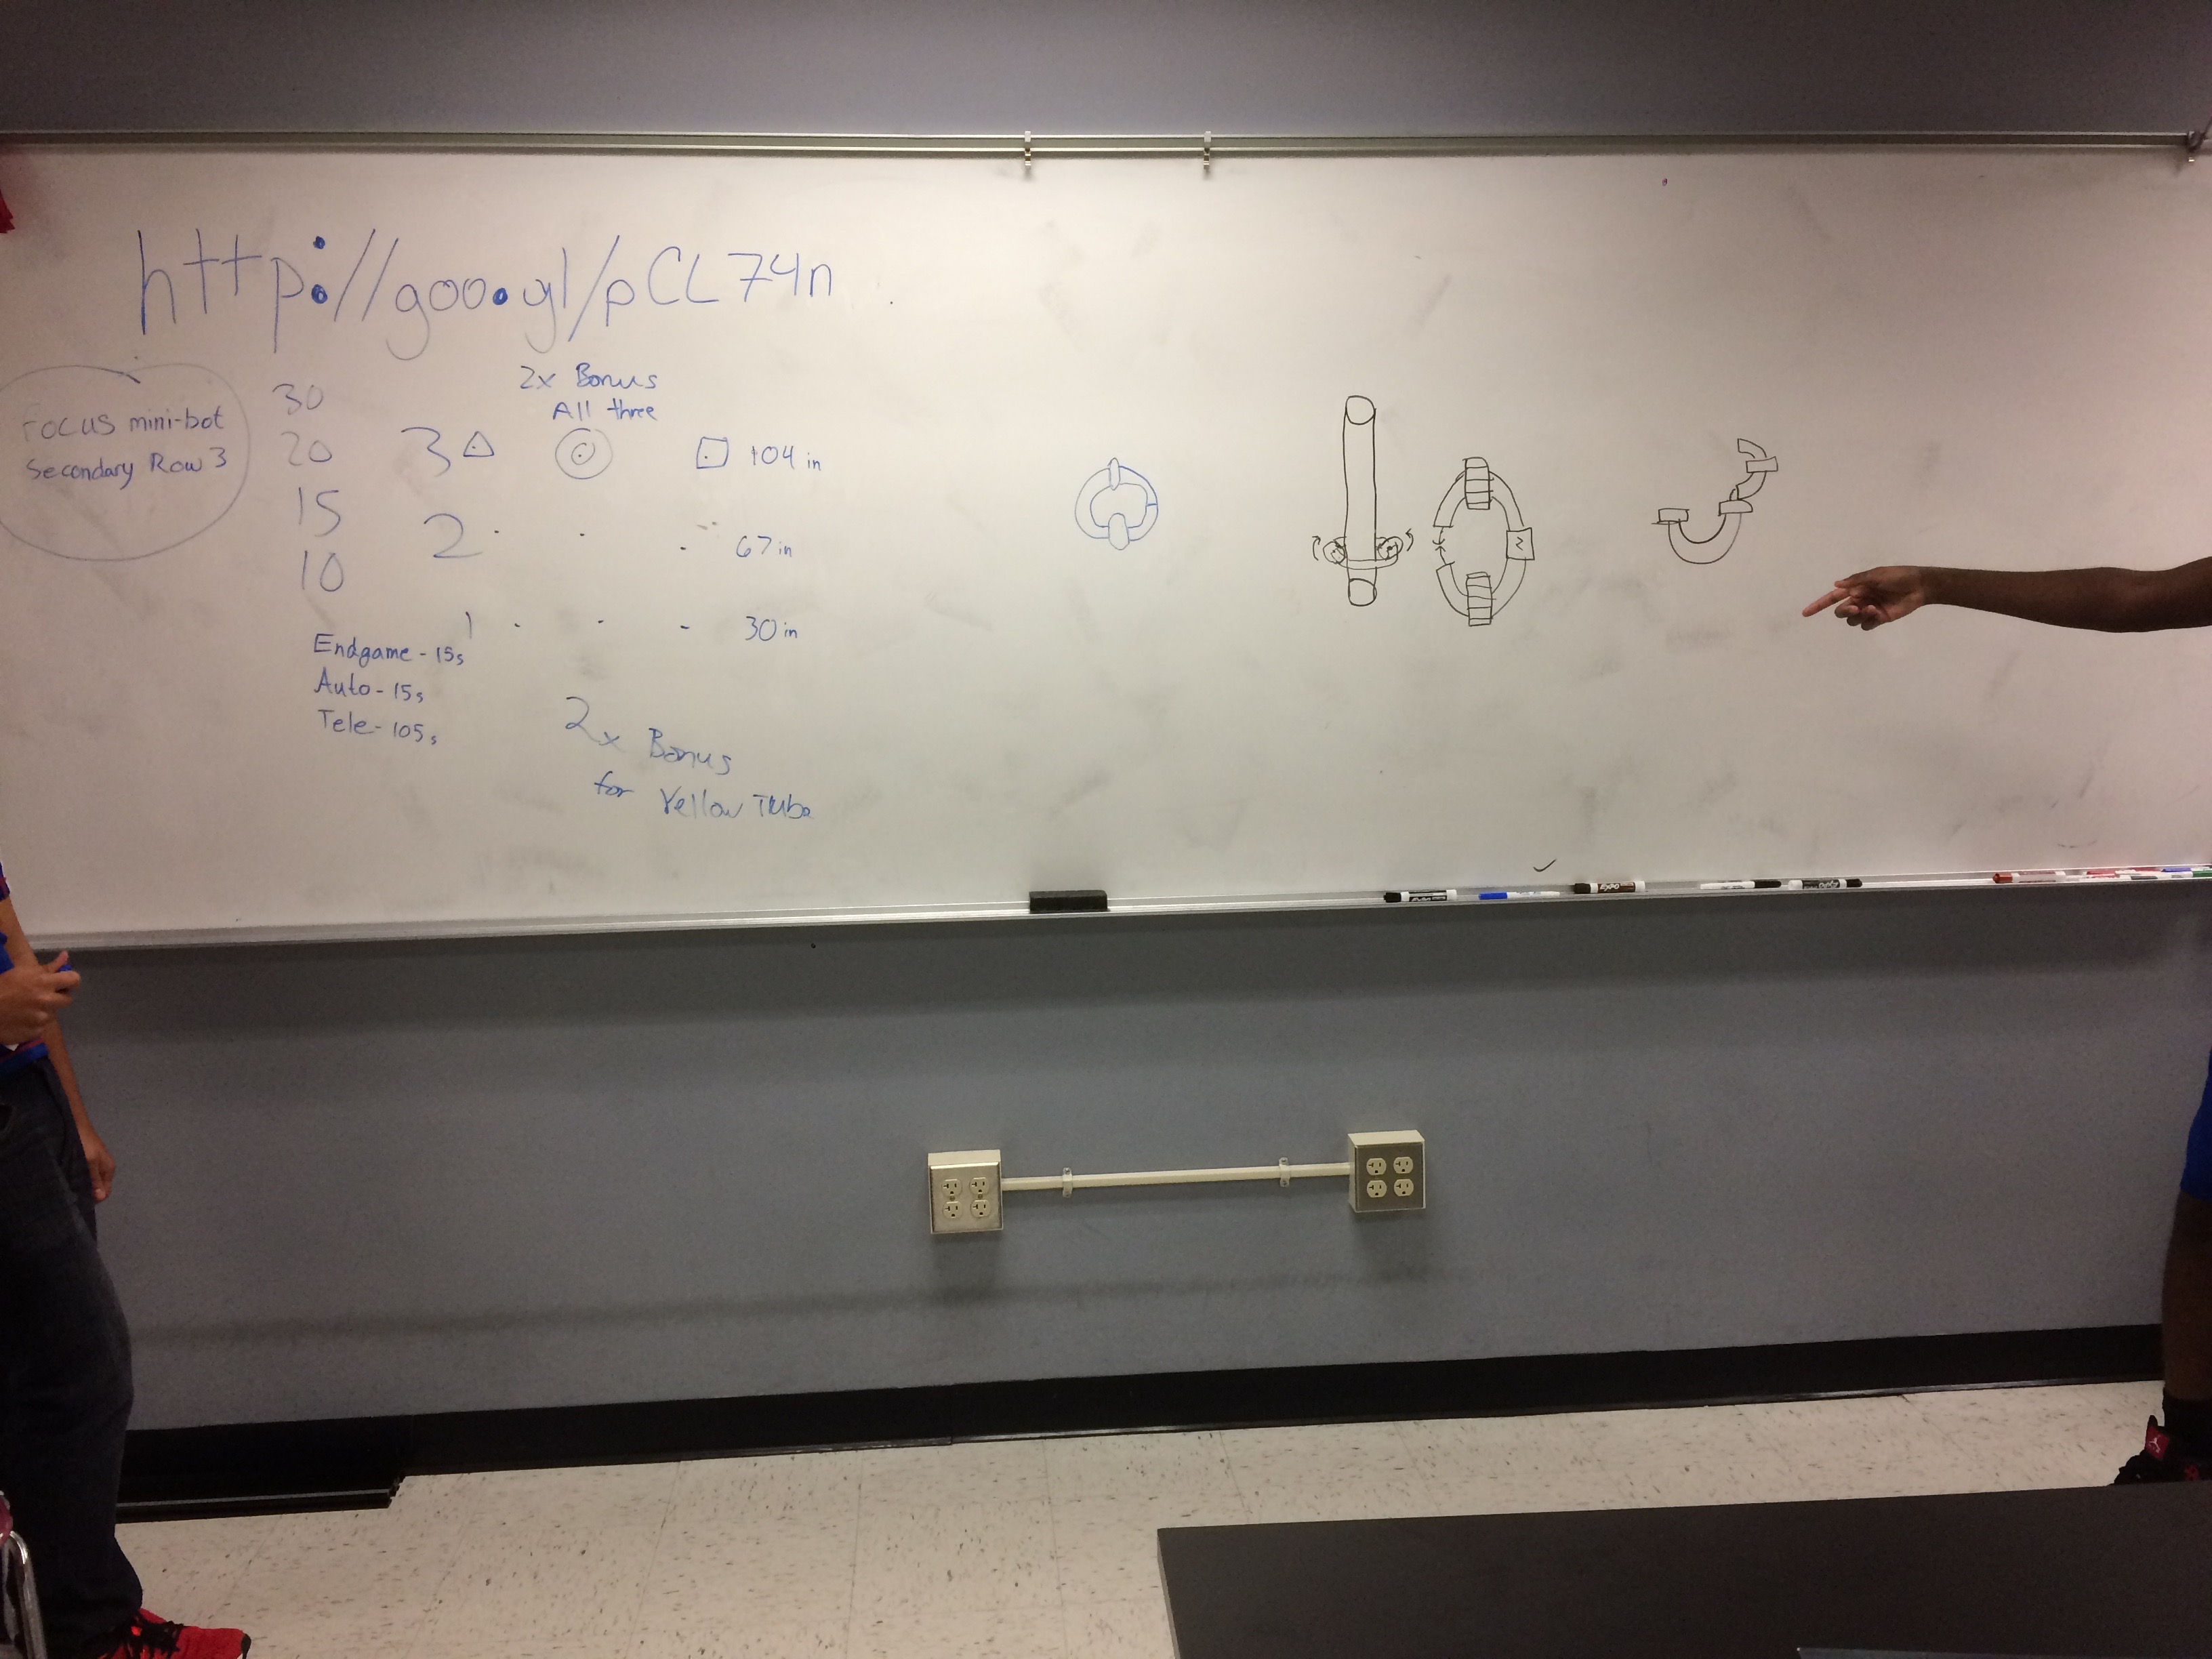 http://goo.gl/pCL74n
FOCUS mini-bot
Secondary Row 3
30
20
15
10
2x Bonus
All three
3
104 in
2
67 in
1
30 in
Endgame - 15s
Auto - 15s
Tele - 105s
2x Bonus
for Yellow Tube
EXPO